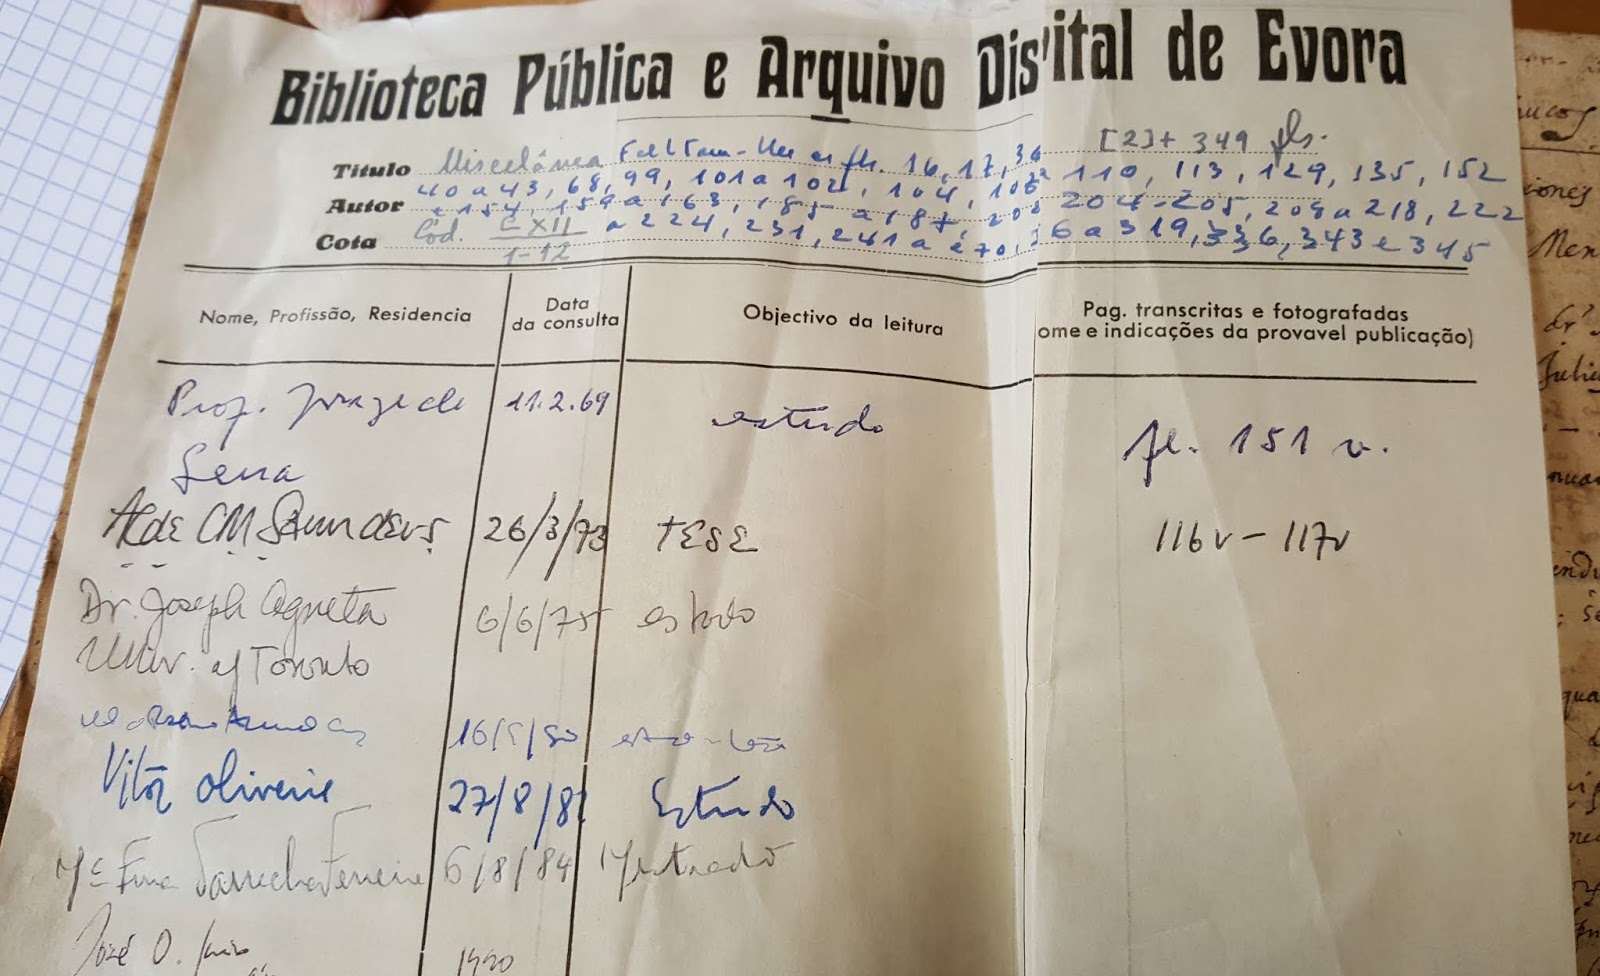 Biblioteca Pública e Arquivo Distrital de Evora
Título Miscelânea Faltam-lhe as fls. 16, 17, 36 [2]+ 349 fls.
40 a 43, 68, 99, 101 a 102, 104, 110, 113, 129, 135, 152
Autor e 154, 159 a 163, 185 a 187, 204-205, 208 a 218, 222
Cota Cód. CXII a 224, 231, 261 a 270, 6 a 319, 336, 343 e 345
1-12
Nome, Profissão, Residencia
Data
da consulta
Objectivo da leitura
Pag. transcritas e fotografadas
ome e indicações da provavel publicação)
Prof. Jorge de 11.2.69 estudo fl. 151 v.
Sena
A C de CM Saunders 26/3/73 TESE 116v - 117v
Dr. Joseph Agneta 6/6/75 estudo
Univ. of Toronto
Vitor Oliveira 27/8/8 Estudo
Ferreira 6/8/84 Mestrado
José O. 1990